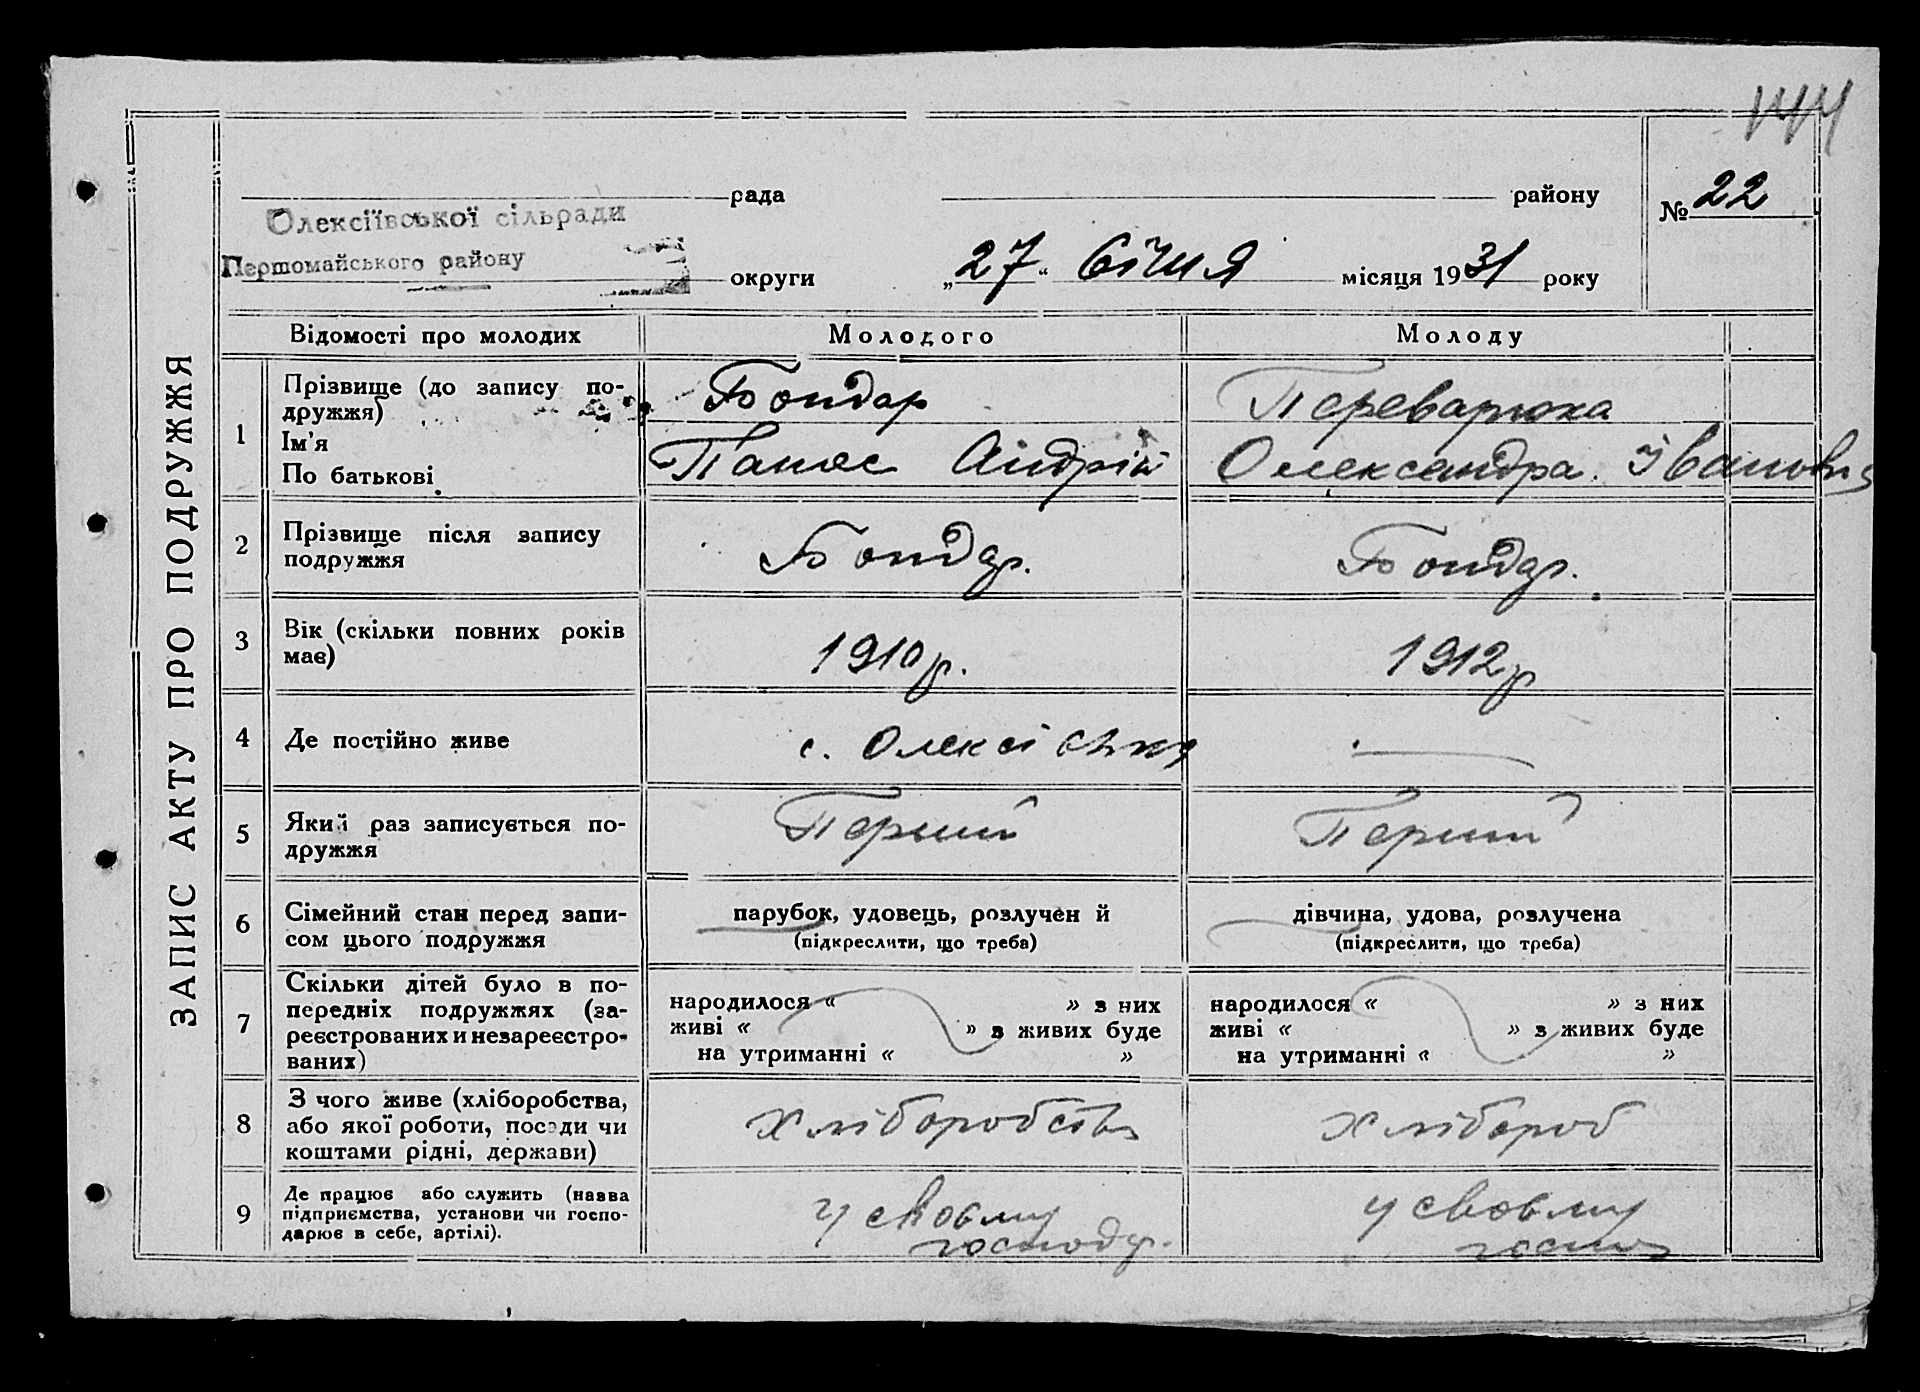 144
рада району № 22
Олексіївської сільради
Першомайського району
округи „27“ Січня місяця 1931 року
ЗАПИС АКТУ ПРО ПОДРУЖЖЯ
Відомості про молодих Молодого Молоду
1 Прізвище (до запису по-
дружжя) Бондар
Ім'я
По батькові Панас Андрій Олександра Івановна
2 Прізвище після запису
подружжя Бондар. Бондар.
3 Вік (скільки повних років
має) 1910 р. 1912 р
4 Де постійно живе с. Олексіївка —
5 Який раз записується по-
дружжя Перший Перший
6 Сімейний стан перед запи-
сом цього подружжя
парубок, удовець, розлучений
(підкреслити, що треба)
дівчина, удова, розлучена
(підкреслити, що треба)
7 Скільки дітей було в по-
передніх подружжях (за-
реєстрованих и незареєстро-
ваних)
народилося “ ” з них
живі “ ” з живих буде
на утриманні “ ”
народилося “ ” з них
живі “ ” з живих буде
на утриманні “ ”
8 З чого живе (хліборобства,
або якої роботи, посади чи
коштами рідні, держави)
Хліборобств Хлібороб
9 Де працює або служить (назва
підприємства, установи чи госпо-
дарює в себе, артілі).
у своєму
господар.
у своєму